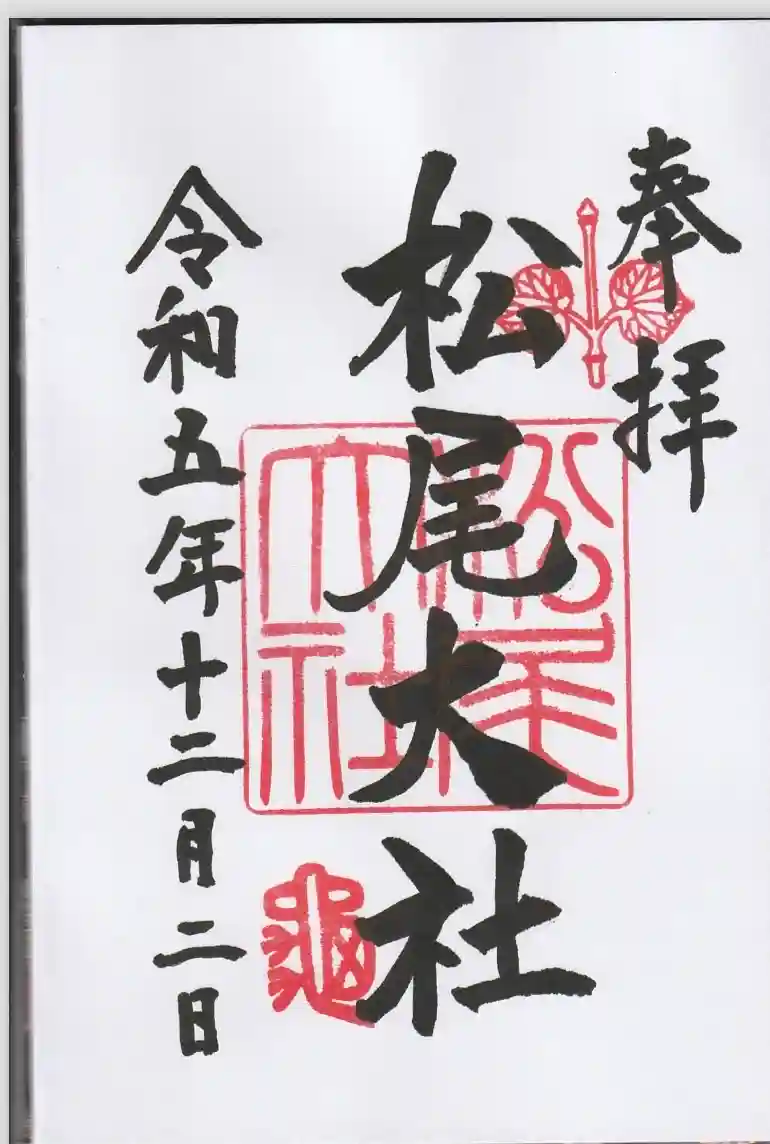 奉拝
松尾大社
松尾大社
龜
令和五年十二月二日